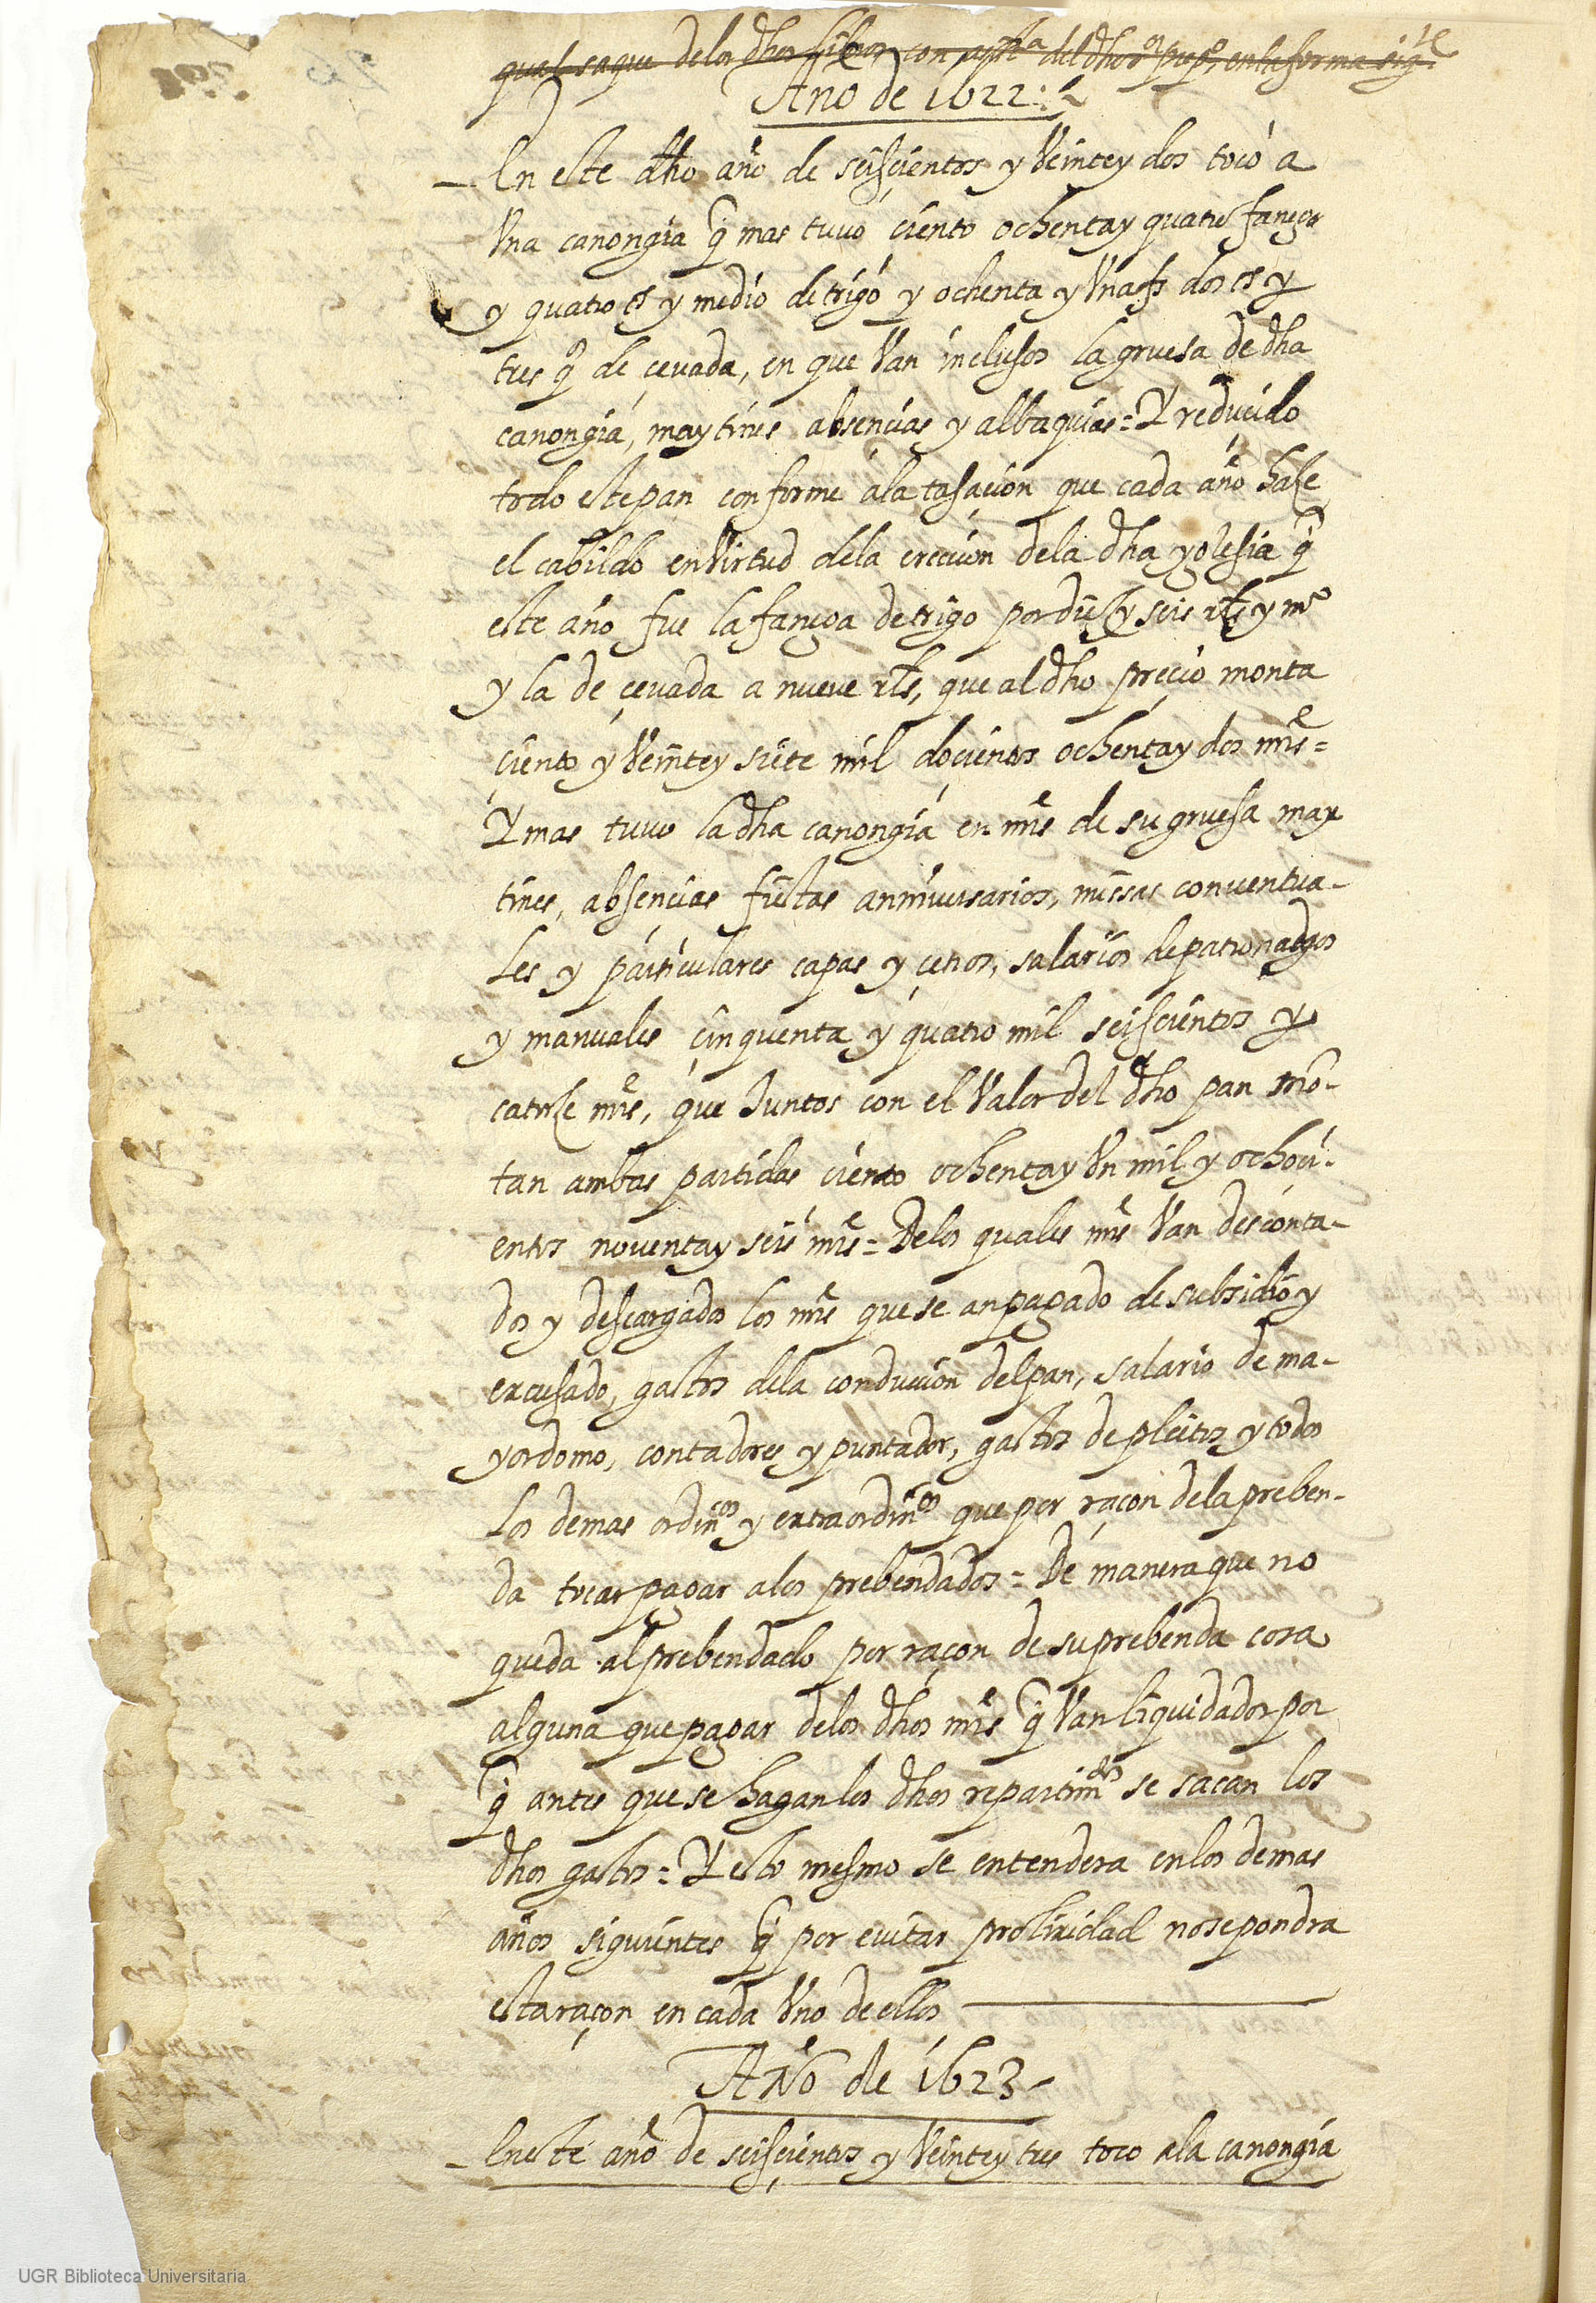 qual saque delos dhos libros con asista del dho sr. pesqr, enla forma sigte
Año de 1622
En este dho año de seisçientos y Veinte y dos toco a
Vna canongia q̃ mas tuuo çiento ochenta y quatro fanegas
y quatro çs y medio de trigo y ochenta y Vna fs dos çs y
tres qos de çeuada, en que Van inclusos la gruesa de dha
canongia, maytines absencias y albaquias = Y reducido
todo este pan conforme a la tasaçion que cada año haze
el cabildo en Virtud dela ereçion dela dha yglesia q̃
este año fue la fanega de trigo por diez y seis rls y mo
y la de çeuada a nueue rls, que al dho preçio monta
çiento y Veinte y siete mil doçientos ochenta y dos mrs =
Y mas tuuo la dha canongia en mrs de su gruesa may
tines, absencias fiestas anniuersarios, missas conuentua-
les y particulares capas y çetros, salarios de patronadgos
y manuales çinquenta y quatro mil seisçientos y
catorze mrs, que Juntos con el Valor del dho pan mō-
tan ambas partidas çiento ochenta y Vn mil y ochoçi-
entos nouenta y seis mrs = Delos quales mrs Van desconta-
dos y descargados los mrs que se an pagado de subsidio y
excusado, gastos dela conduçion del pan, salario de ma-
yordomo, contadores y puntador, gastos de pleitos y todos
los demas ordinos y extraordinos que por raçon dela preben-
da tocar pagar alos prebendados = De manera que no
queda al prebendado por raçon de su prebenda cosa
alguna que pagar delos dhos mrs q̃ Van liquidados por
q̃ antes que se hagan los dhos repartimos se sacan los
dhos gastos = Y esto mesmo se entendera en los demas
años siguientes q̃ por euitar prolixidad no se pondra
esta raçon en cada Vno de ellos
Año de 1623
En este año de seisçientos y Veinte y tres toco ala canongia
UGR Biblioteca Universitaria